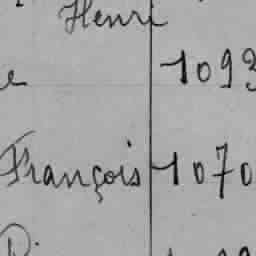 Henri
e 1093
François 1070